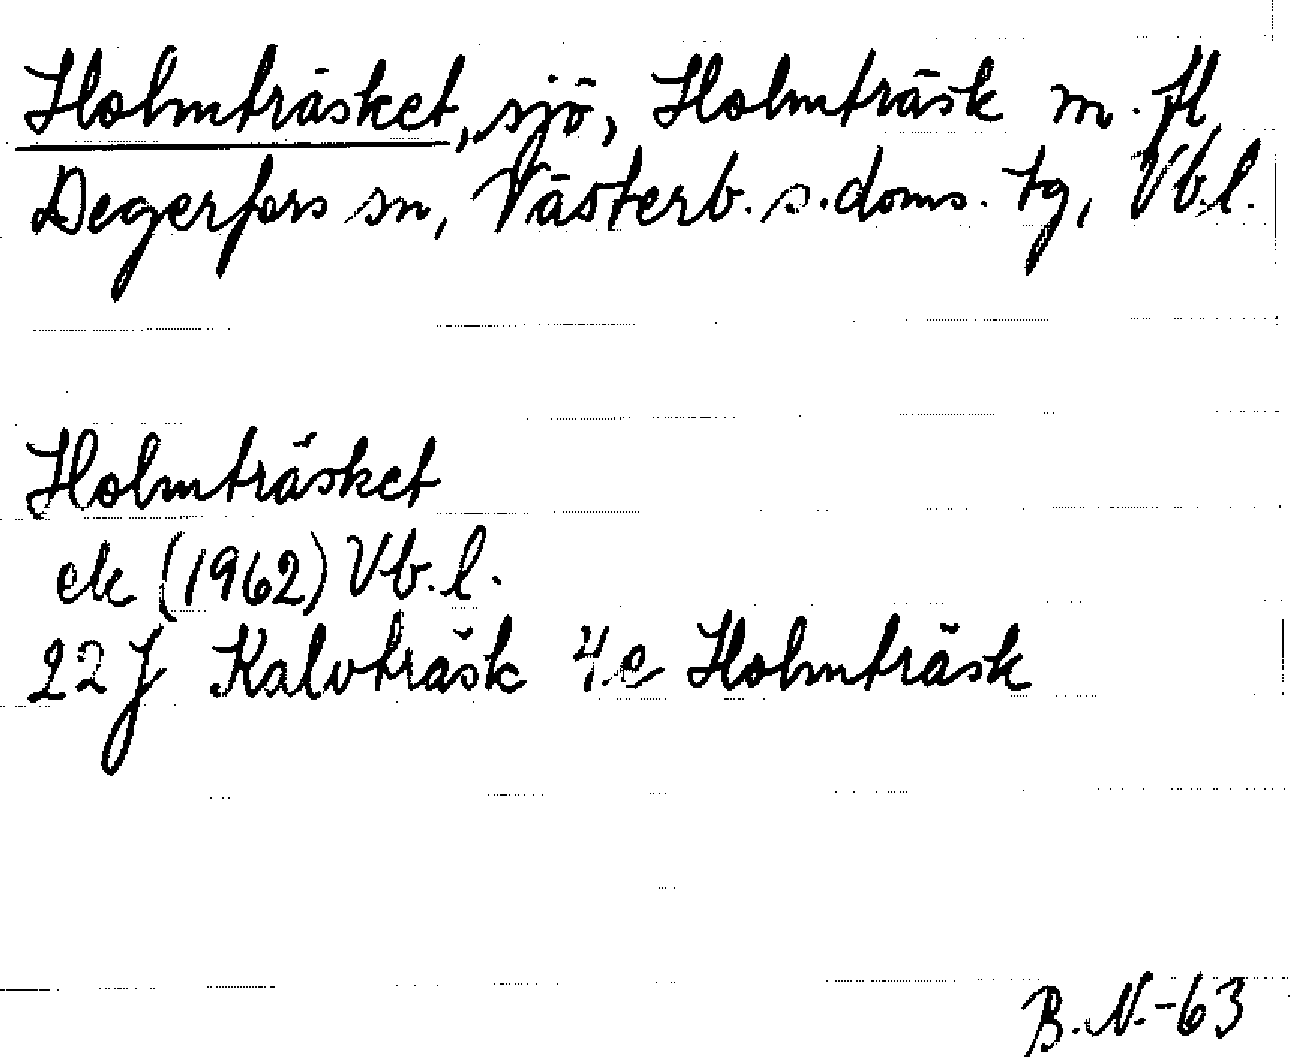 Holmträsket, sjö, Holmträsk m. fl
Degerfors sn, Västerb. s. doms. tg, Vb.l.
Holmträsket
ek (1962) Vb. l.
22 J Kalvträsk 4 c Holmträsk
B. N. -63